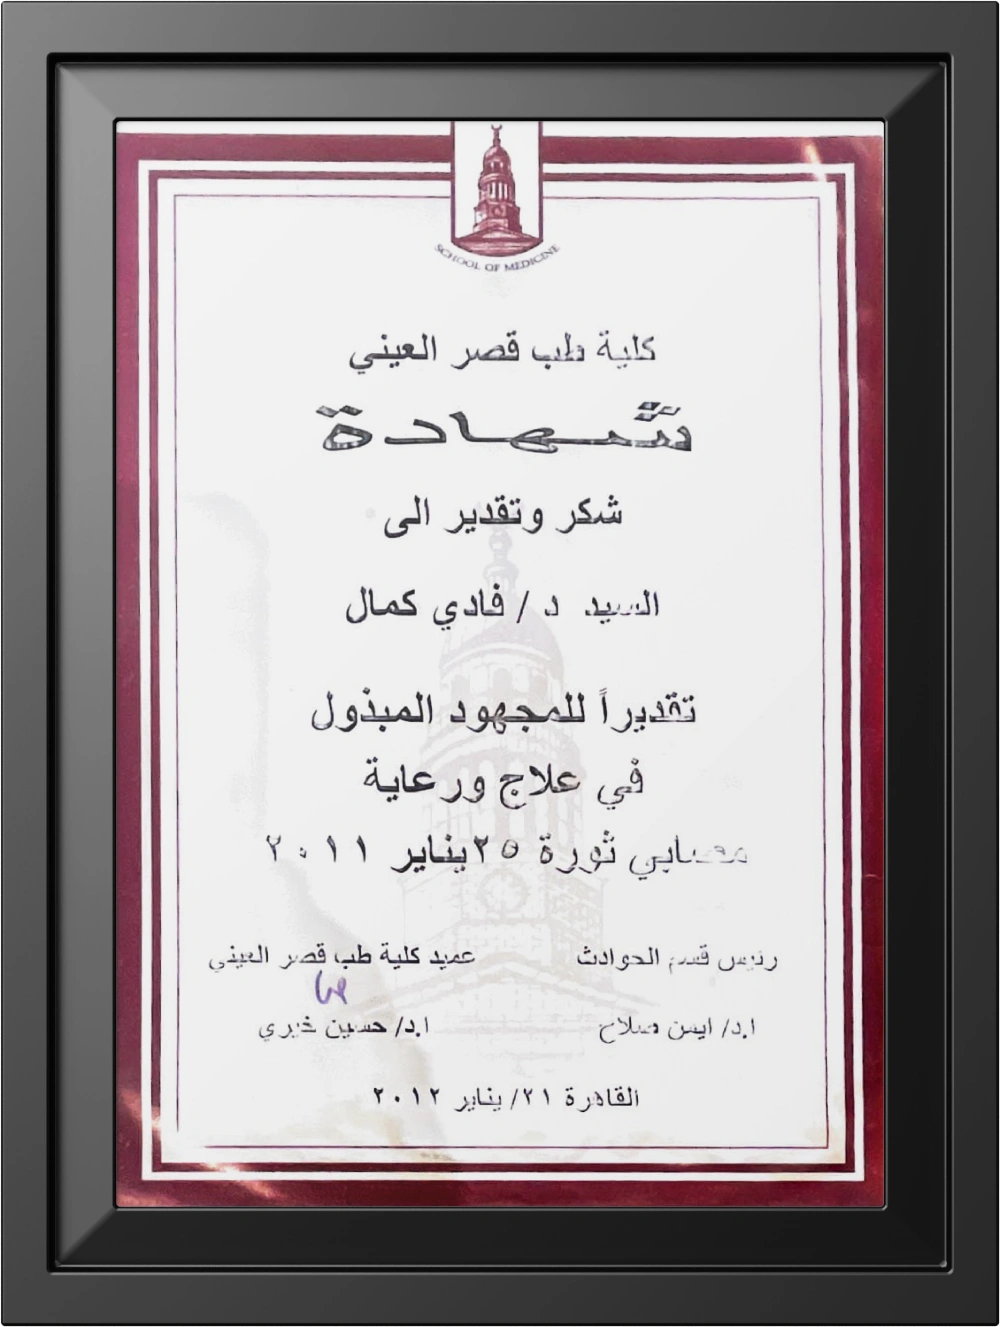 SCHOOL OF MEDICINE
كلية طب قصر العيني
شهادة
شكر وتقدير الى
السيد د / فادي كمال
تقديراً للمجهود المبذول
في علاج ورعاية
مصابي ثورة ٢٥يناير ٢٠١١
رئيس قسم الحوادث عميد كلية طب قصر العيني
ا.د/ ايمن صلاح ا.د/ حسين خيري
القاهرة ٢١/ يناير ٢٠١٢